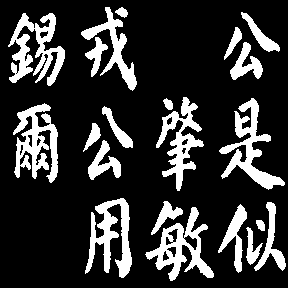 公是似
肇敏
戎公用
錫爾